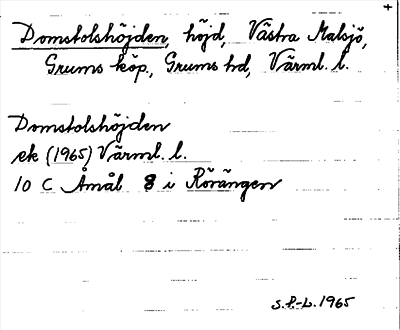 Domstolshöjden, höjd, Västra Malsjö,
Grums köp., Grums hd, Värml. l.
Domstolshöjden
ek (1965) Värml. l.
10 C Åmål 8 i Rörängen
S.P-L. 1965